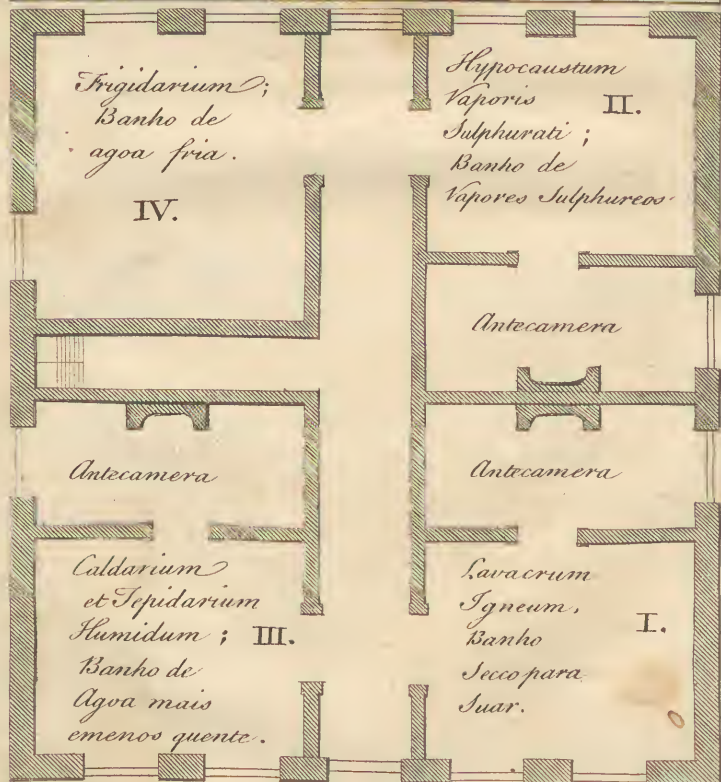 Frigidarium;
Banho de
agoa fria.
IV.
Hypocaustum
Vaporis
II.
Sulphurati;
Banho de
Vapores Sulphureos
Antecamera
Antecamera
Antecamera
Caldarium
et Tepidarium
Humidum; III.
Banho de
Agoa mais
emenos quente.
Lavacrum
Igneum.
I.
Banho
Secco para
Suar.